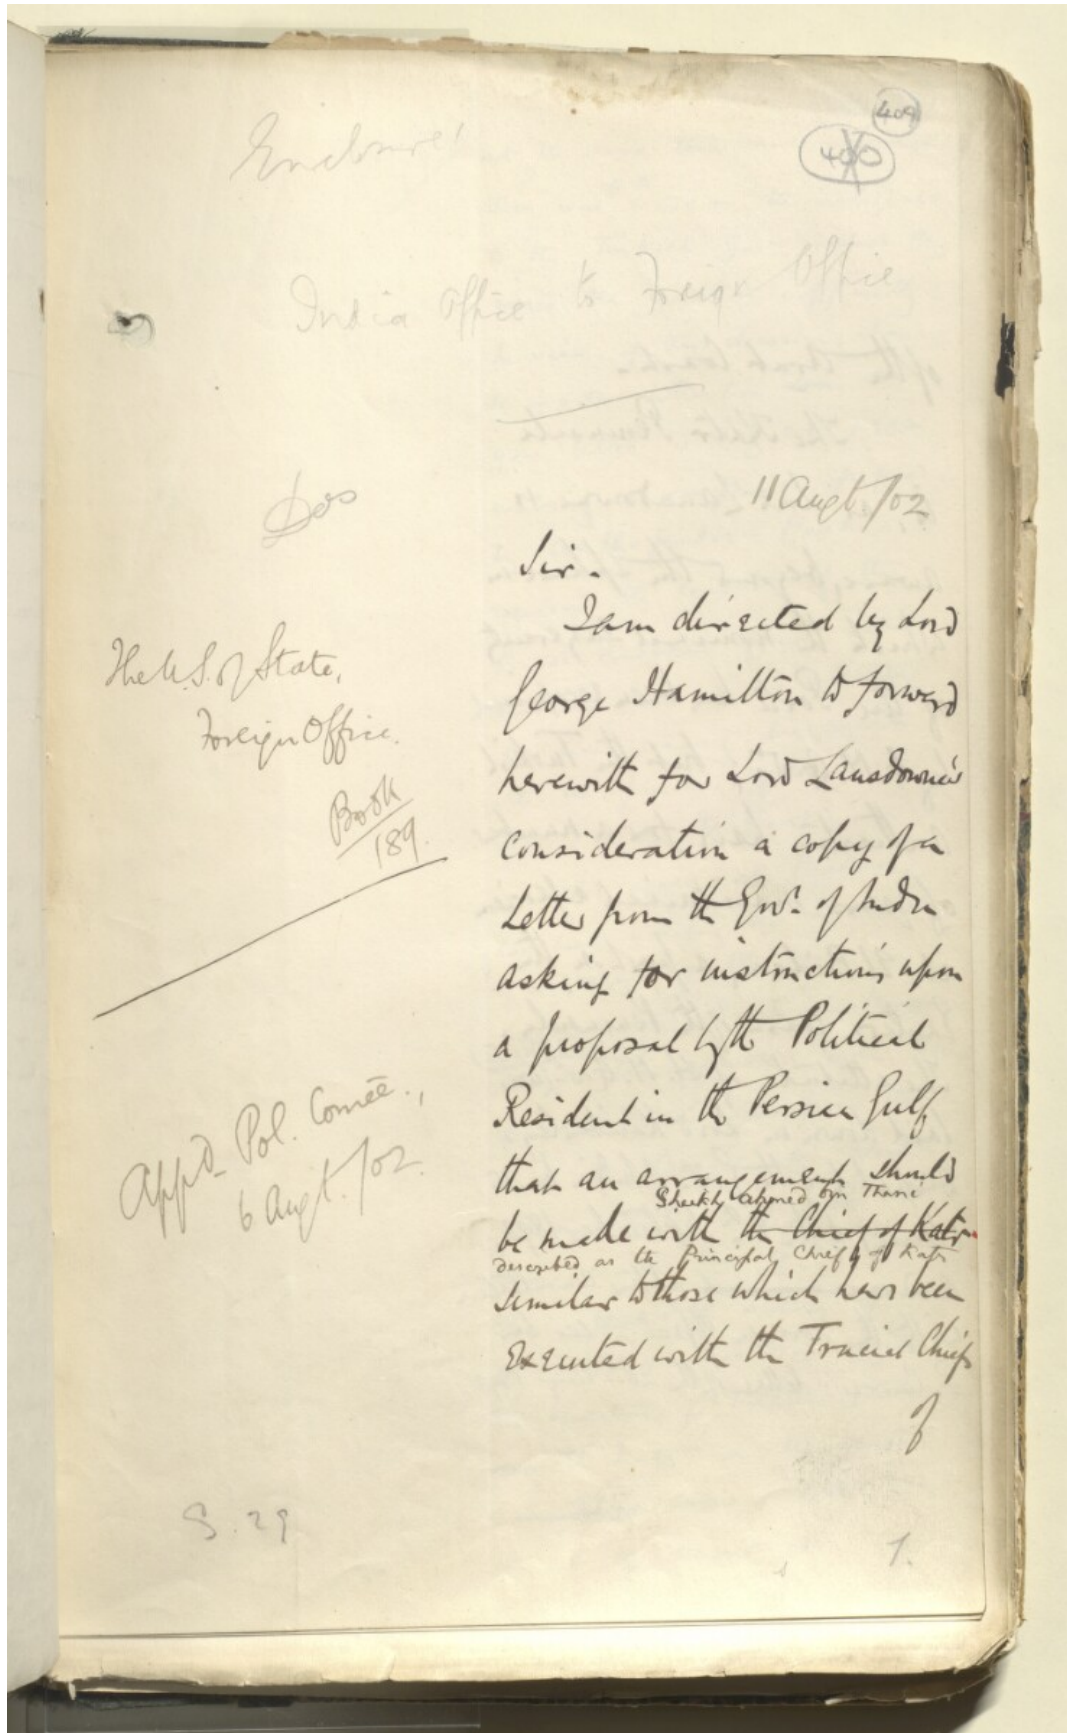 409
400
Enclosure
India Office to Foreign Office
11 Augt. /02
The U.S. of State,
Foreign Office.
Book
189.
Appd. Pol. Comee.,
6 Augt. /02.
Sir.
I am directed by Lord
George Hamilton to forward
herewith for Lord Lansdowne's
consideration a copy of a
Letter from the Govt. of India
asking for instructions upon
a proposal by the Political
Resident in the Persian Gulf
that an arrangement should
Sheikh Ahmed bin Thani
be made with the Chief of Katr
described as the Principal Chief of Katr
similar to those which have been
executed with the Trucial Chiefs
of
S. 29
1.